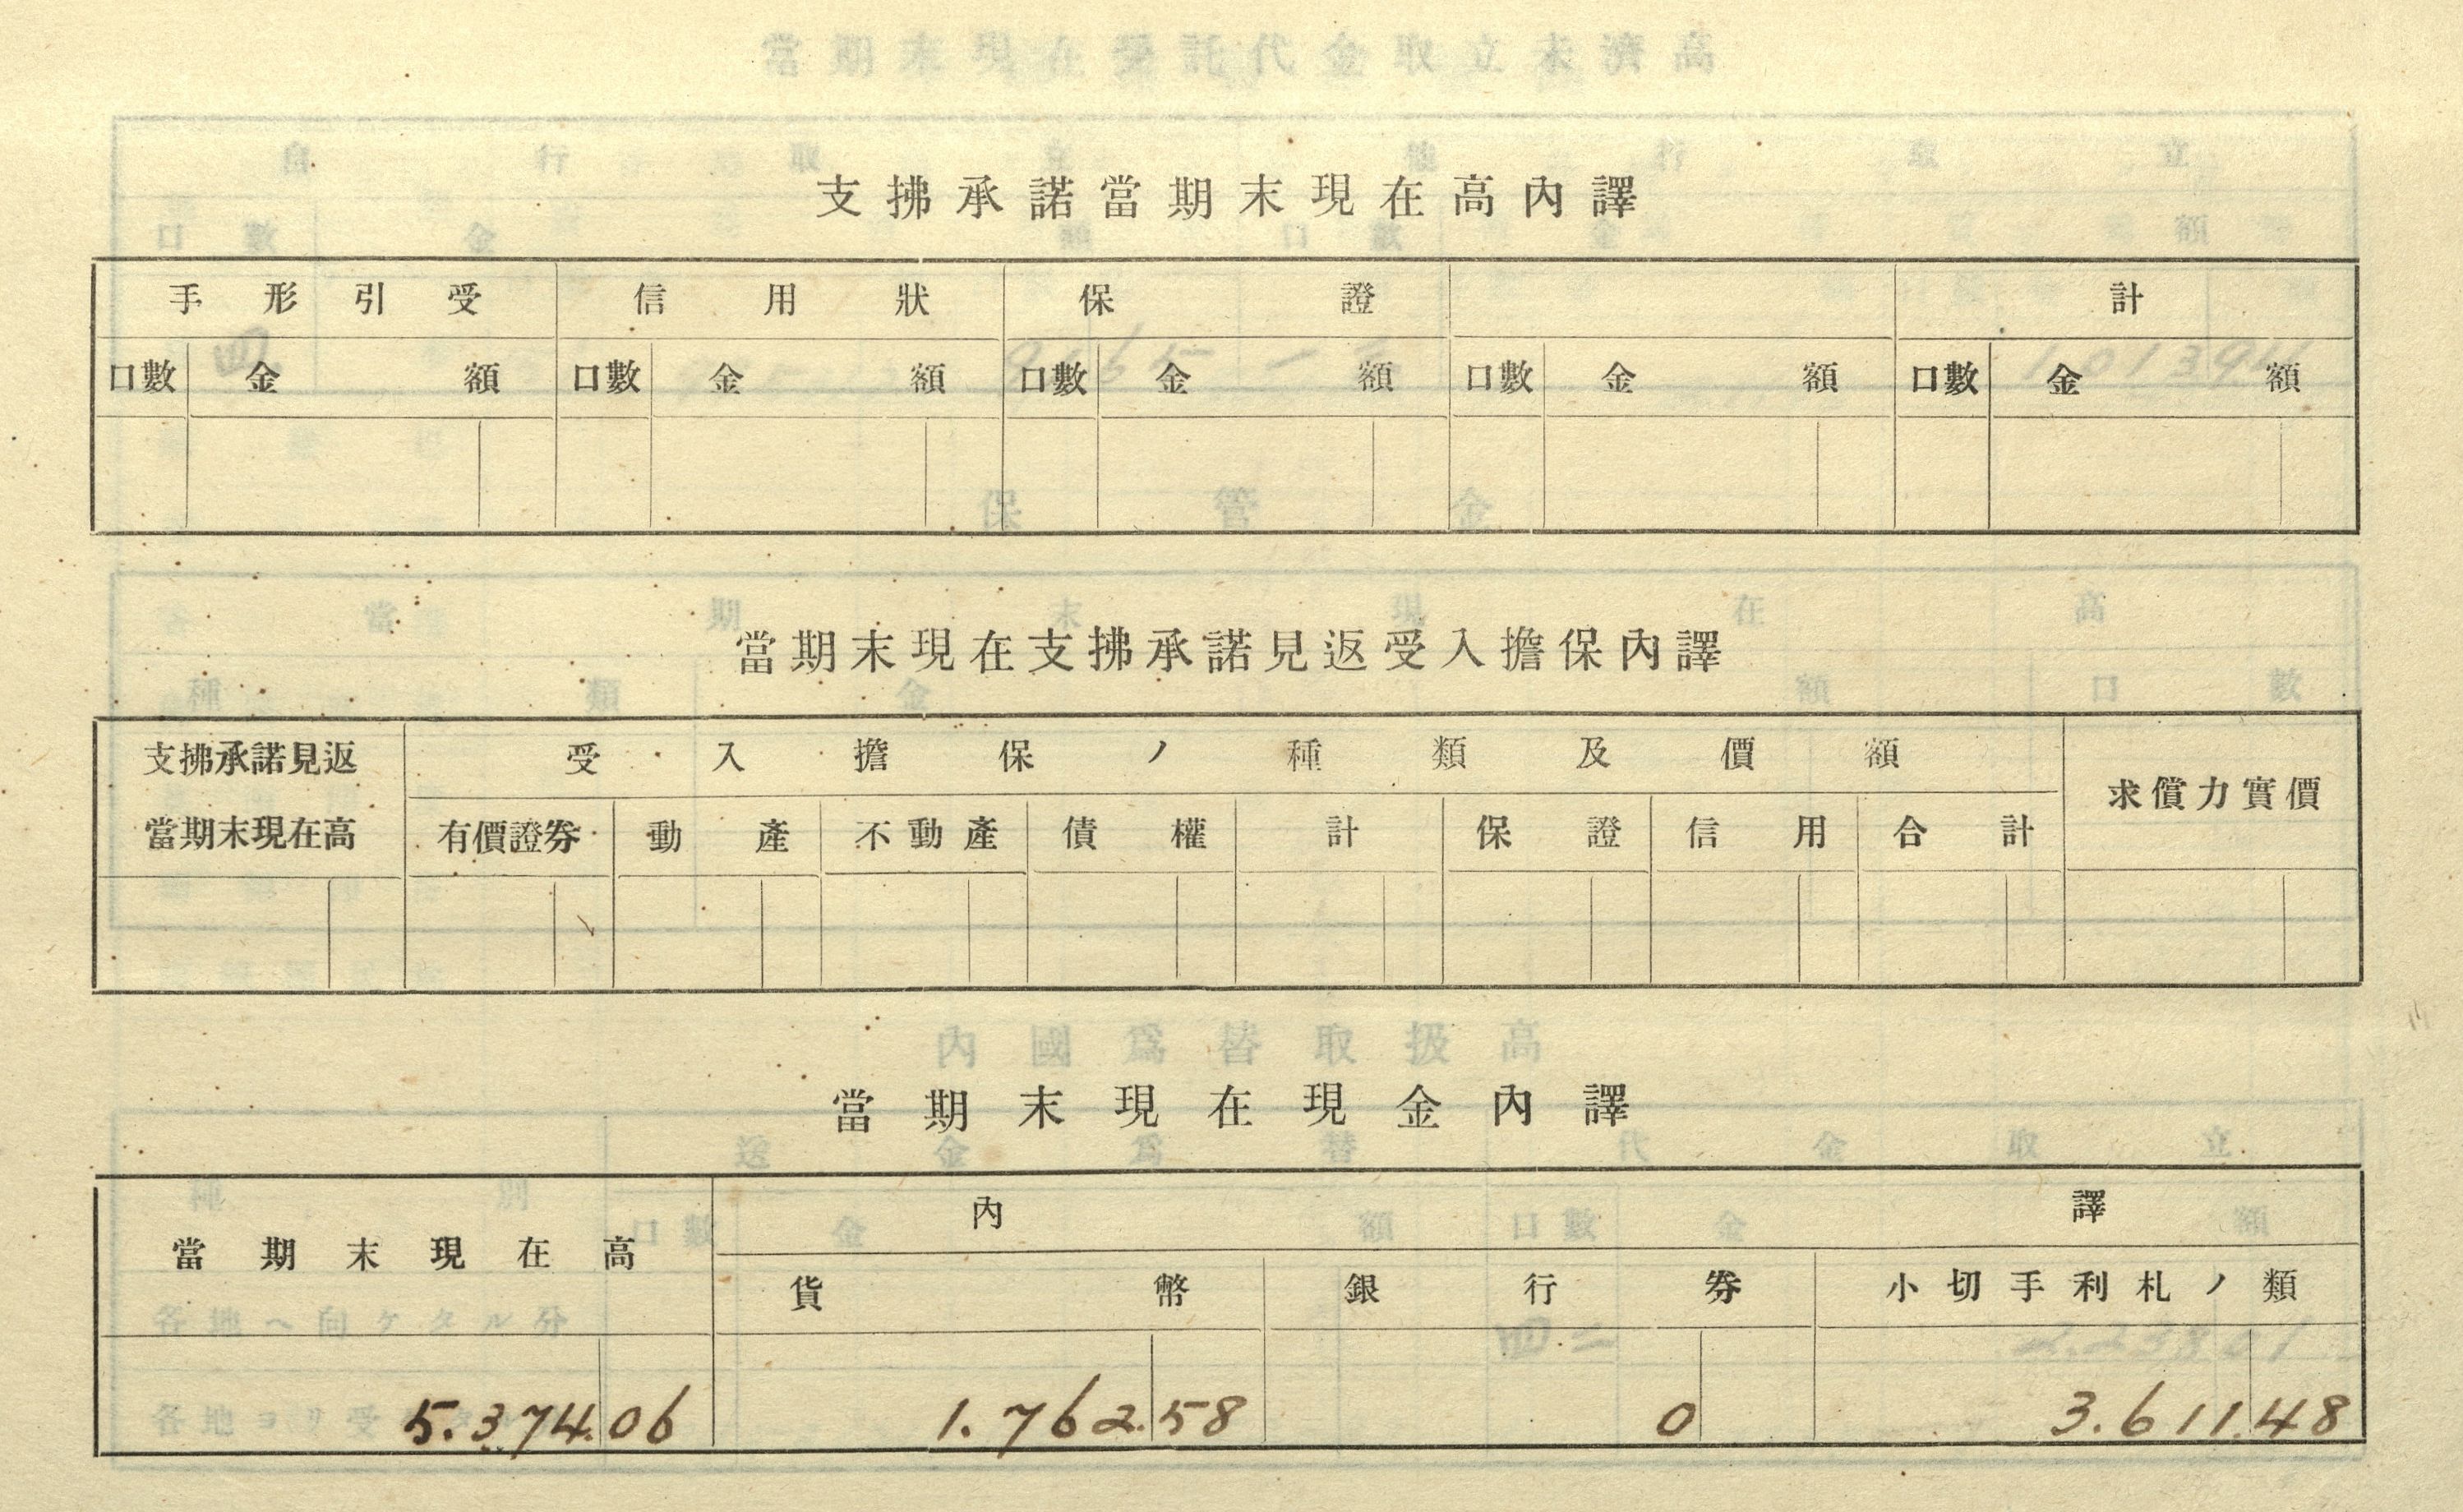 支拂承諾當期末現在高內譯
手形引受 信用狀 保證 計
口數 金額 口數 金額 口數 金額 口數 金額 口數 金額
當期末現在支拂承諾見返受入擔保內譯
支拂承諾見返 受入擔保ノ種類及價額
當期末現在高 有價證券 動產 不動產 債權 計 保證 信用 合計 求償力實價
當期末現在現金內譯
當期末現在高 內譯
貨幣 銀行券 小切手利札ノ類
5.374.06 1.762.58 0 3.611.48